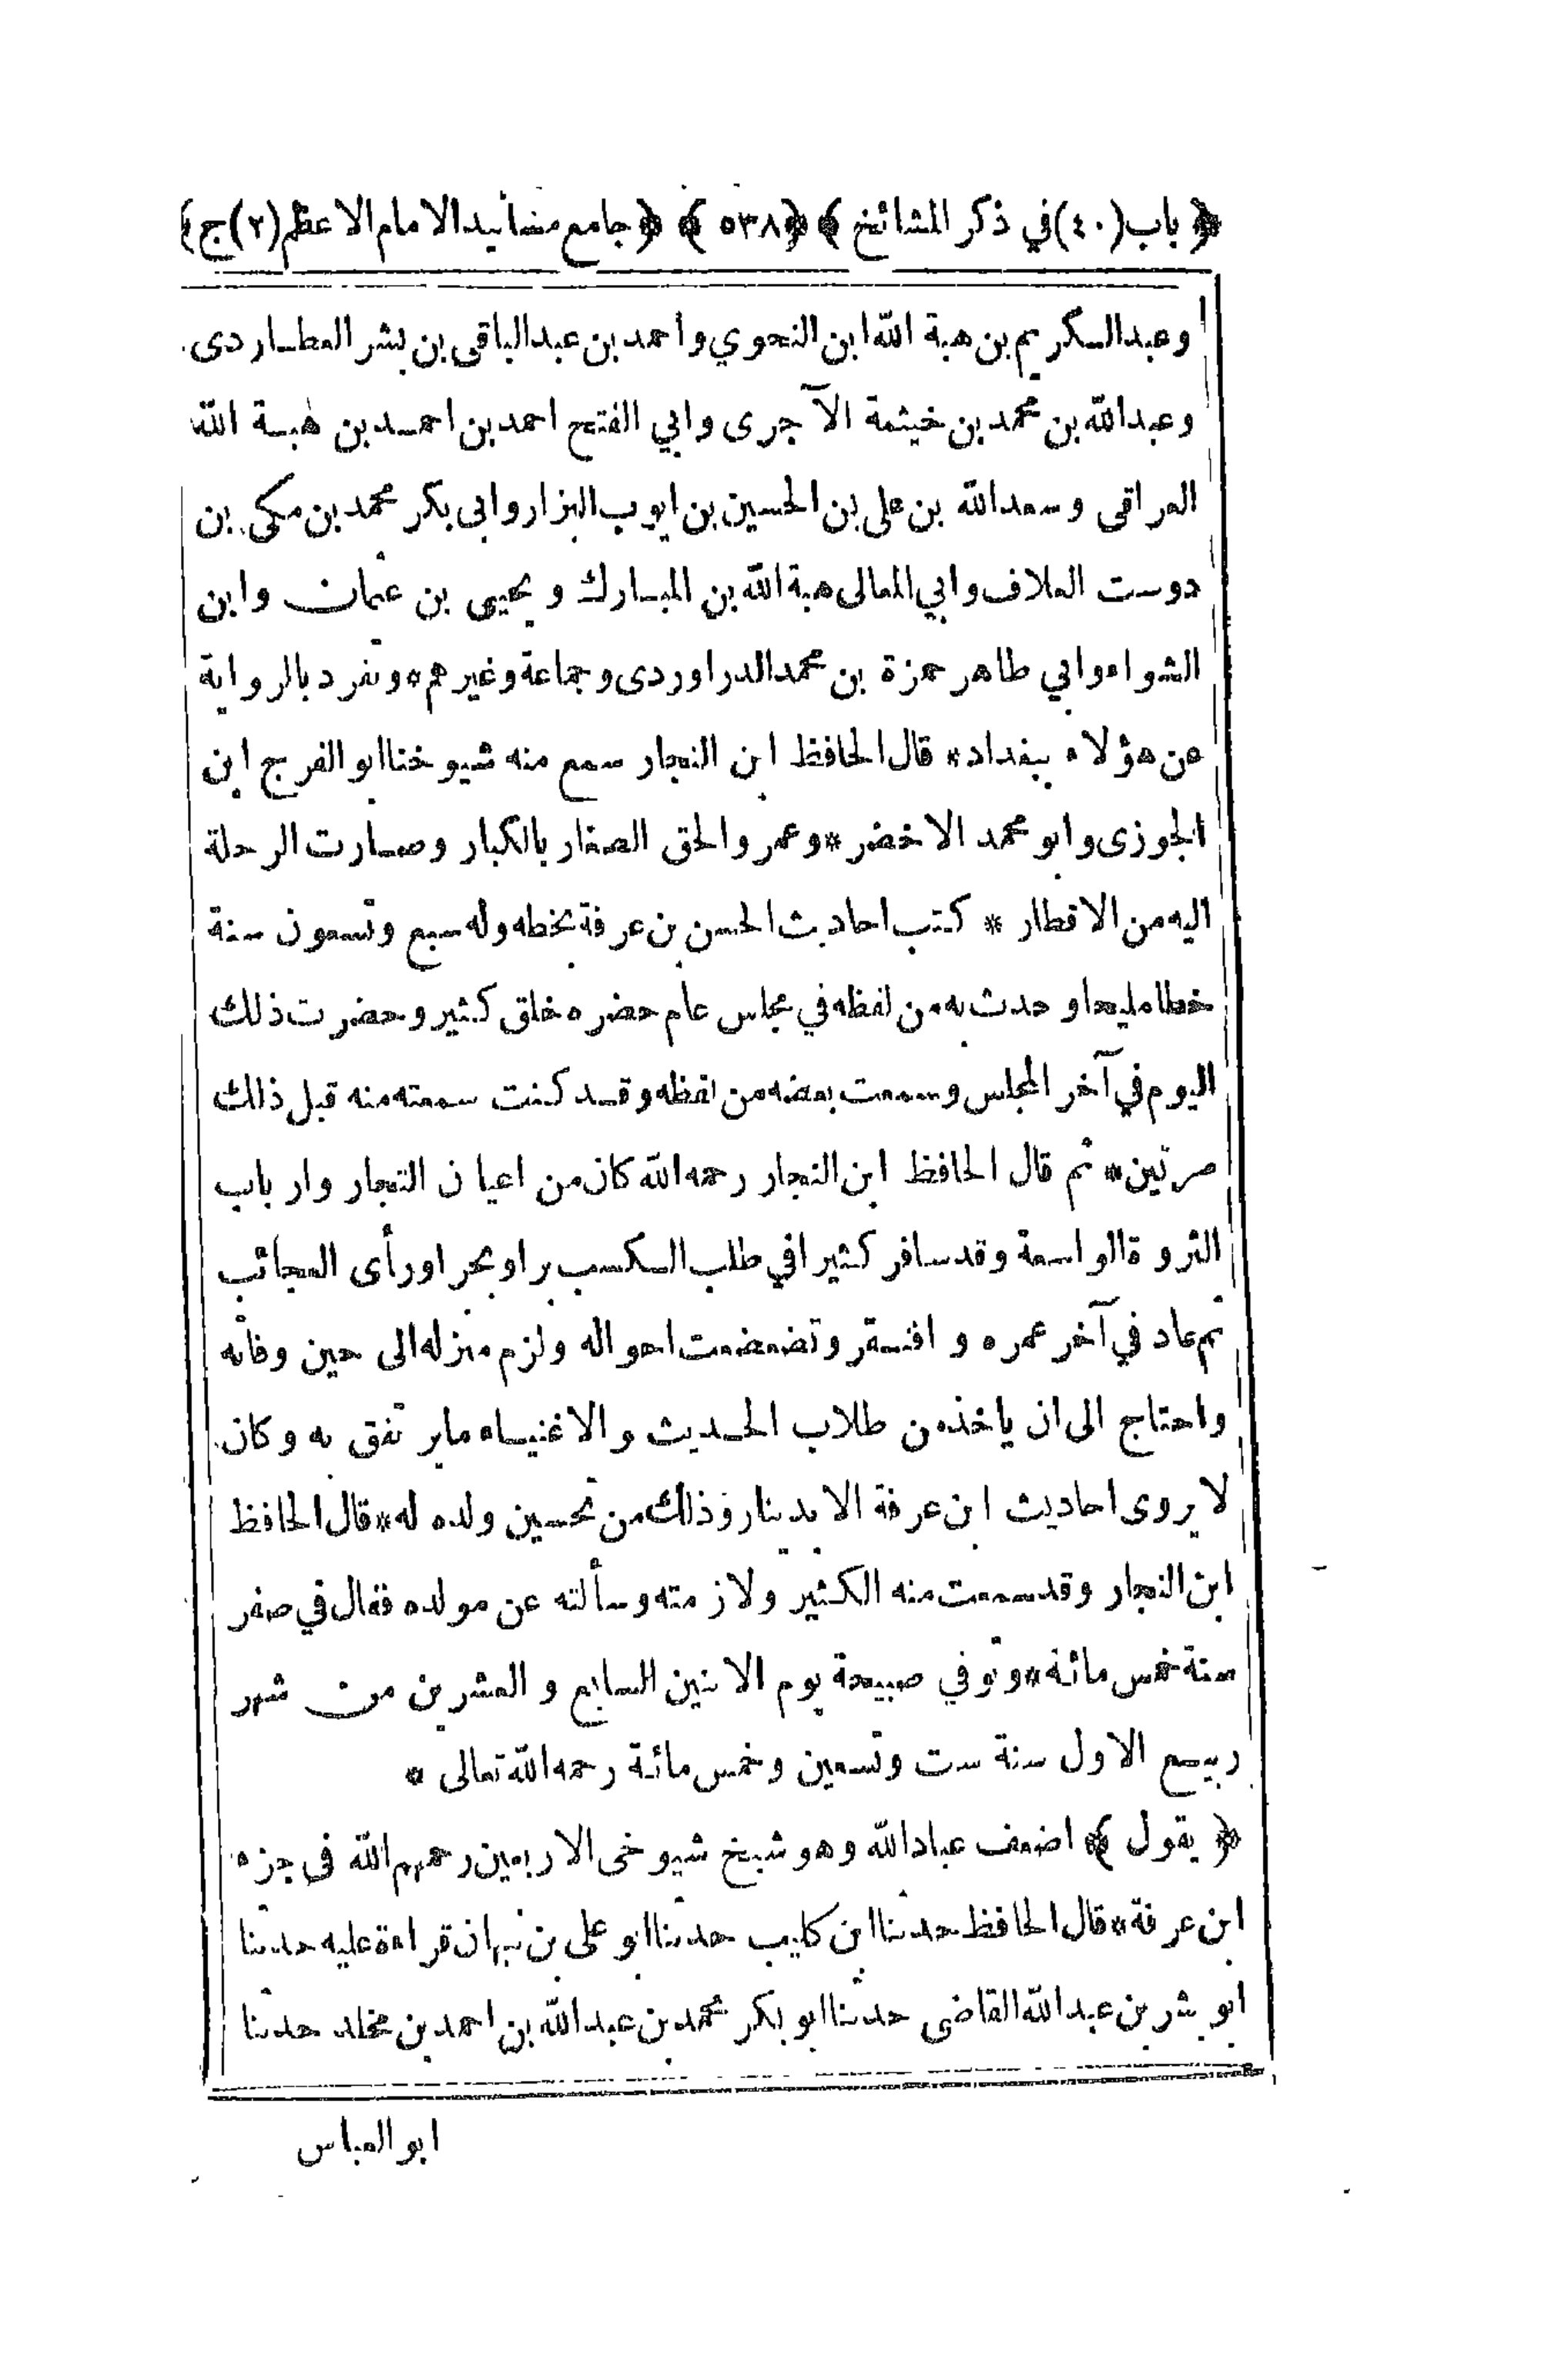 ﴿ باب (٤٠) في ذكر المشائخ ﴾ ﴿٥٣٨﴾ ﴿ جامع مسانيد الامام الاعظم (٢) ج ﴾
وعبد الكريم بن هبة الله ابن النحوي وأحمد بن عبد الباقي بن بشر العطاردى
وعبد الله بن محمد بن خيثمة الآجرى وابي الفتح احمد بن احمد بن هبة الله
العراقى وسعد الله بن على بن الحسين بن ايوب البزار وابى بكر محمد بن مكى بن
دوست العلاف وابي المعالى هبة الله بن المبارك و يحيى بن عثمان وابن
الشواء وابي طاهر حمزة بن محمد الدراوردى وجماعة وغيرهم * وتفرد بالرواية
عن هؤلاء ببغداد * قال الحافظ ابن النجار سمع منه شيوخنا ابو الفرج ابن
الجوزى وابو محمد الاخضر * وعمر والحق الصغار بالكبار وصارت الرحلة
اليه من الاقطار * كتب احاديث الحسن بن عرفة بخطه وله سبع وتسعون سنة
خطا مليحا وحدث به من لفظه في مجلس عام حضره خلق كثير وحضرت ذلك
اليوم في آخر المجلس وسمعت بعضه من لفظه وقد كنت سمعته منه قبل ذلك
مرتين * ثم قال الحافظ ابن النجار رحمه الله كان من اعيان التجار وارباب
الثروة الواسعة وقد سافر كثيرا في طلب الكسب برا وبحرا ورأى العجائب
ثم عاد في آخر عمره و افتقر وتضعضعت احواله ولزم منزله الى حين وفاته
واحتاج الى ان ياخذ من طلاب الحديث والاغنياء ما يرتفق به وكان
لا يروى احاديث ابن عرفة الا بدينار وذلك من تحسين ولده له * قال الحافظ
ابن النجار وقد سمعت منه الكثير ولازمته وسألته عن مولده فقال في صفر
سنة خمس مائة * وتوفي صبيحة يوم الاثنين السابع و العشرين من شهر
ربيع الاول سنة ست وتسعين وخمس مائة رحمه الله تعالى *
﴿ يقول ﴾ اضعف عباد الله وهو شيخ شيوخى الاربعين رحمهم الله فى جزء
ابن عرفة * قال الحافظ حدثنا ابن كليب حدثنا ابو على بن نبهان قراءة عليه حدثنا
ابو بشر بن عبد الله القاضى حدثنا ابو بكر محمد بن عبد الله بن احمد بن مخلد حدثنا
ابو العباس